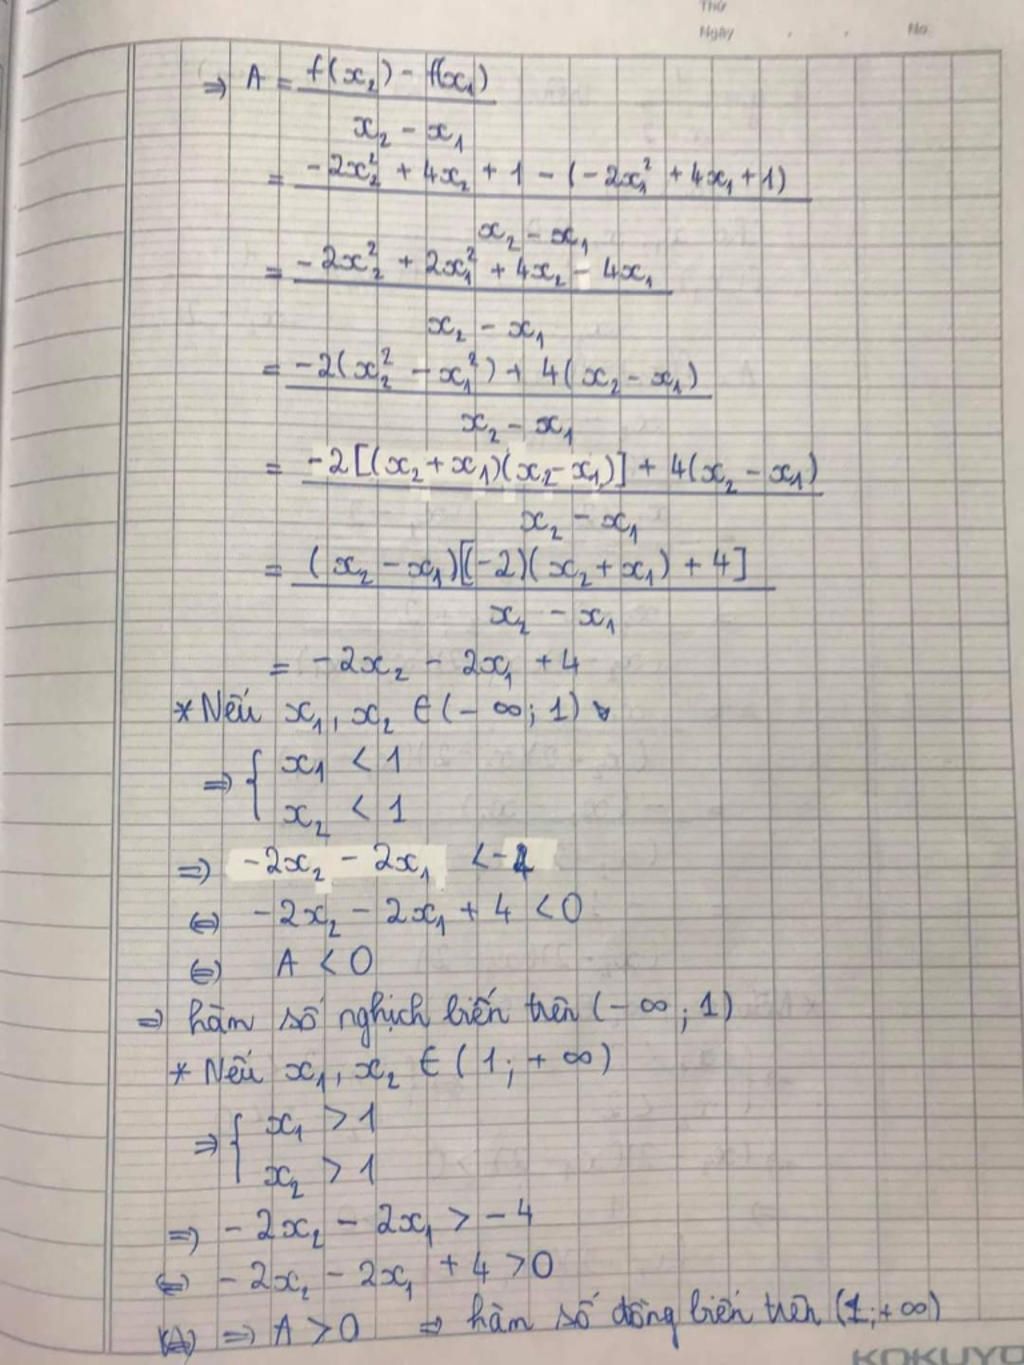 Thứ
Ngày . . No
⇒ A = f(x₂) - f(x₁)
x₂ - x₁
= -2x₂² + 4x₂ + 1 - (-2x₁² + 4x₁ + 1)
x₂ - x₁
= -2x₂² + 2x₁² + 4x₂ - 4x₁
x₂ - x₁
= -2(x₂² - x₁²) + 4(x₂ - x₁)
x₂ - x₁
= -2[(x₂ + x₁)(x₂ - x₁)] + 4(x₂ - x₁)
x₂ - x₁
= (x₂ - x₁)[(-2)(x₂ + x₁) + 4]
x₂ - x₁
= -2x₂ - 2x₁ + 4
* Nếu x₁, x₂ ∈ (-∞; 1)
⇒ { x₁ < 1
x₂ < 1
⇒ -2x₂ - 2x₁ < -4
⇔ -2x₂ - 2x₁ + 4 < 0
⇔ A < 0
⇒ hàm số nghịch biến trên (-∞; 1)
* Nếu x₁, x₂ ∈ (1; +∞)
⇒ { x₁ > 1
x₂ > 1
⇒ -2x₂ - 2x₁ > -4
⇔ -2x₂ - 2x₁ + 4 > 0
⇒ A > 0 ⇒ hàm số đồng biến trên (1; +∞)
KOKUYO